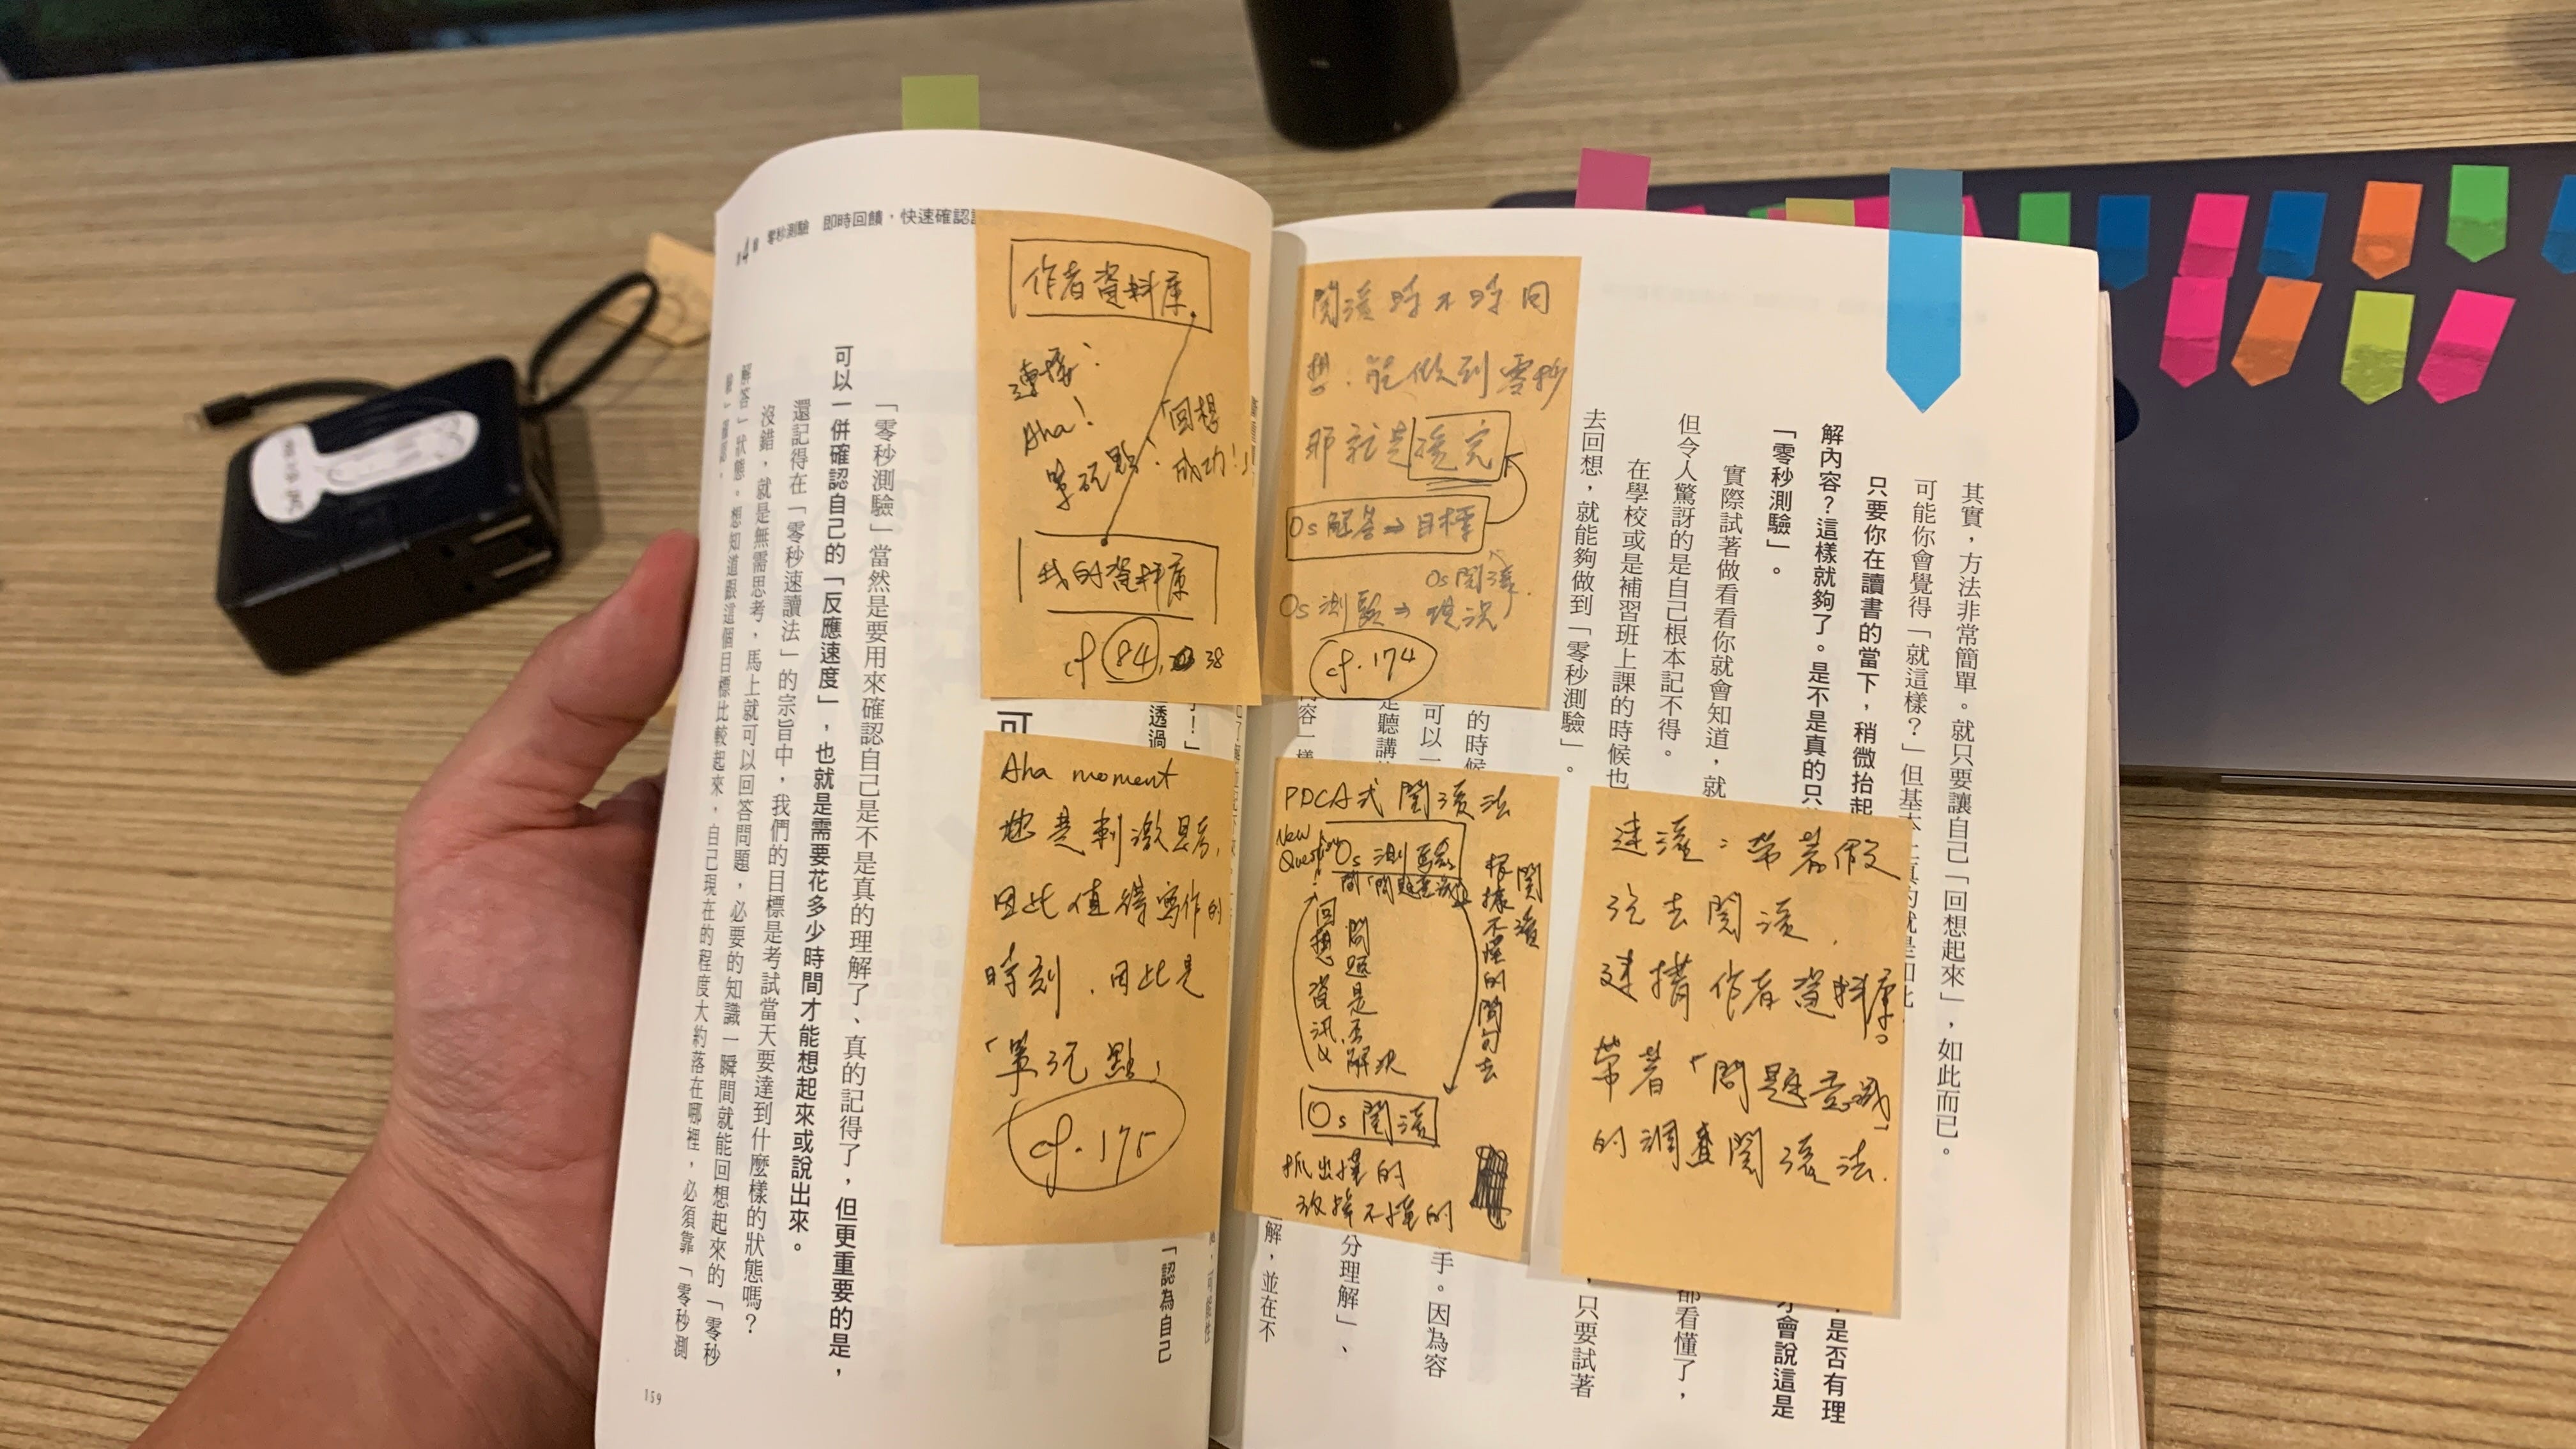 其實，方法非常簡單。就只要讓自己「回想起來」，如此而已。
可能你會覺得「就這樣？」但基本上真的就是如此
只要你在讀書的當下，稍微抬起
，是否有理
解內容？這樣就夠了。是不是真的只
才會說這是
「零秒測驗」。
實際試著做看看你就會知道，就
都看懂了，
但令人驚訝的是自己根本記不得。
在學校或是補習班上課的時候也
只要試著
去回想，就能夠做到「零秒測驗」。
的時候
手。因為容
可以一
是聽講
分理解」、
內容一樣
解，並在不
閱讀時不時回
想，能做到零秒
那就是讀完
0s 解答⇒目標
0s 閱讀
0s 測驗⇒現況
cf. 174
PDCA式閱讀法
New
Question
0s 測驗
問「問題意識」
根據不懂的問句去
閱讀
回想資訊
問題是否解決
0s 閱讀
抓出懂的
放掉不懂的
速讀：帶著假
說去閱讀，
建構作者資料庫。
帶著「問題意識」
的調查閱讀法.
第4章 零秒測驗 即時回饋，快速確認
作者資料庫
連接：
Aha!
單元點：
「回想
成功!」
我的資料庫
cf 84, 38
Aha moment
也是刺激點，
因此值得寫作的
時刻，因此是
「單元點」
cf. 175
透過
「認為自己
可
「零秒測驗」當然是要用來確認自己是不是真的理解了、真的記得了，但更重要的是，
可以一併確認自己的「反應速度」，也就是需要花多少時間才能想起來或說出來。
還記得在「零秒速讀法」的宗旨中，我們的目標是考試當天要達到什麼樣的狀態嗎？
沒錯，就是無需思考，馬上就可以回答問題，必要的知識一瞬間就能回想起來的「零秒
解答」狀態。想知道跟這個目標比較起來，自己現在的程度大約落在哪裡，必須靠「零秒測
159